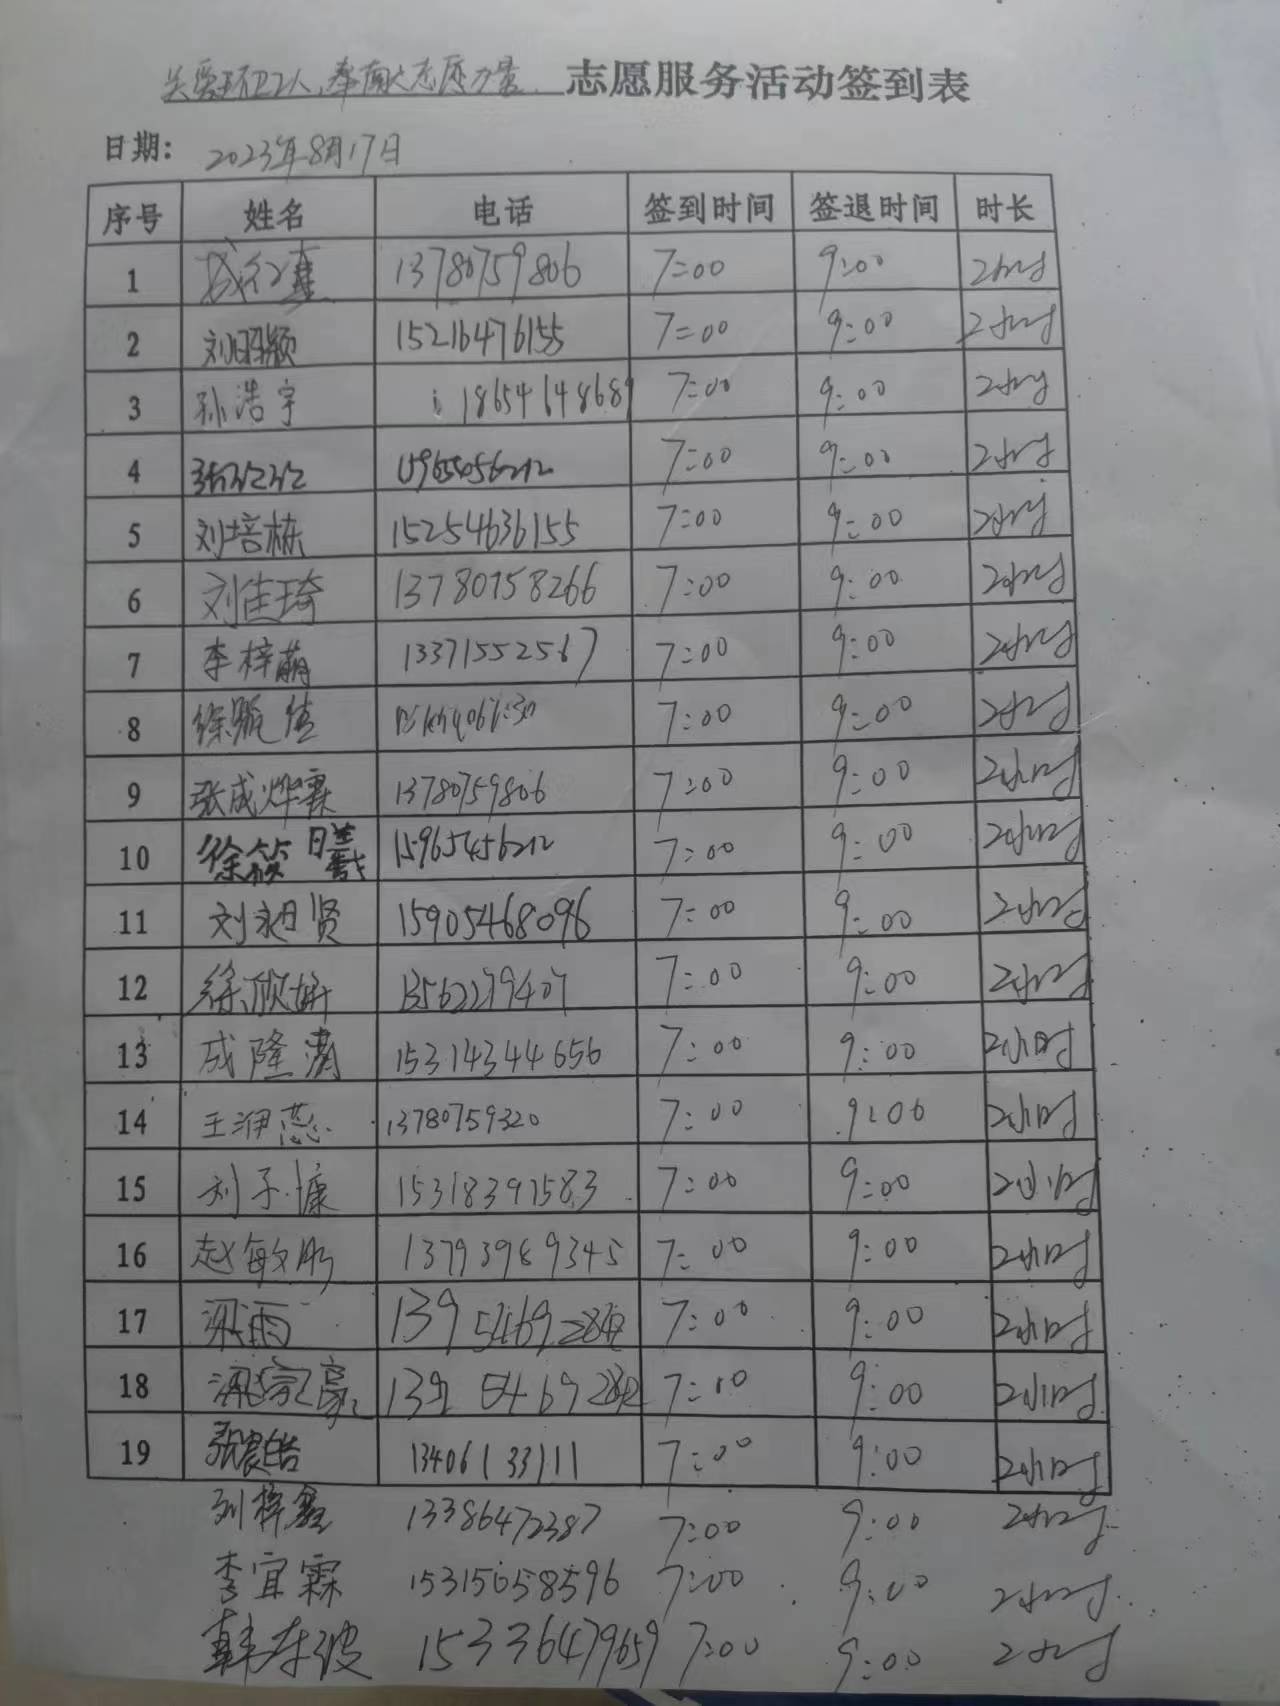 关爱环卫工人,奉献志愿力量 志愿服务活动签到表
日期: 2023年8月17日
序号 姓名 电话 签到时间 签退时间 时长
1 13780759806 7:00 9:00 2小时
2 刘明颖 15216476155 7:00 9:00 2小时
3 孙浩宇 18654648689 7:00 9:00 2小时
4 7:00 9:00 2小时
5 刘培栋 15254636155 7:00 9:00 2小时
6 刘佳琦 13780758266 7:00 9:00 2小时
7 李梓萌 13371552567 7:00 9:00 2小时
8 7:00 9:00 2小时
9 张成烨霖 13780759806 7:00 9:00 2小时
10 15965456212 7:00 9:00 2小时
11 刘昶贤 15905468096 7:00 9:00 2小时
12 徐欣妍 13562279407 7:00 9:00 2小时
13 成隆 15314344656 7:00 9:00 2小时
14 王洢蕊 13780759320 7:00 9:00 2小时
15 刘子慷 15318397583 7:00 9:00 2小时
16 赵敏彤 13793989345 7:00 9:00 2小时
17 梁雨 7:00 9:00 2小时
18 豪 7:00 9:00 2小时
19 张宸皓 13406133111 7:00 9:00 2小时
刘梓鑫 13386472387 7:00 9:00 2小时
李宜霖 15315658596 7:00 9:00 2小时
韩东波 15336479659 7:00 9:00 2小时